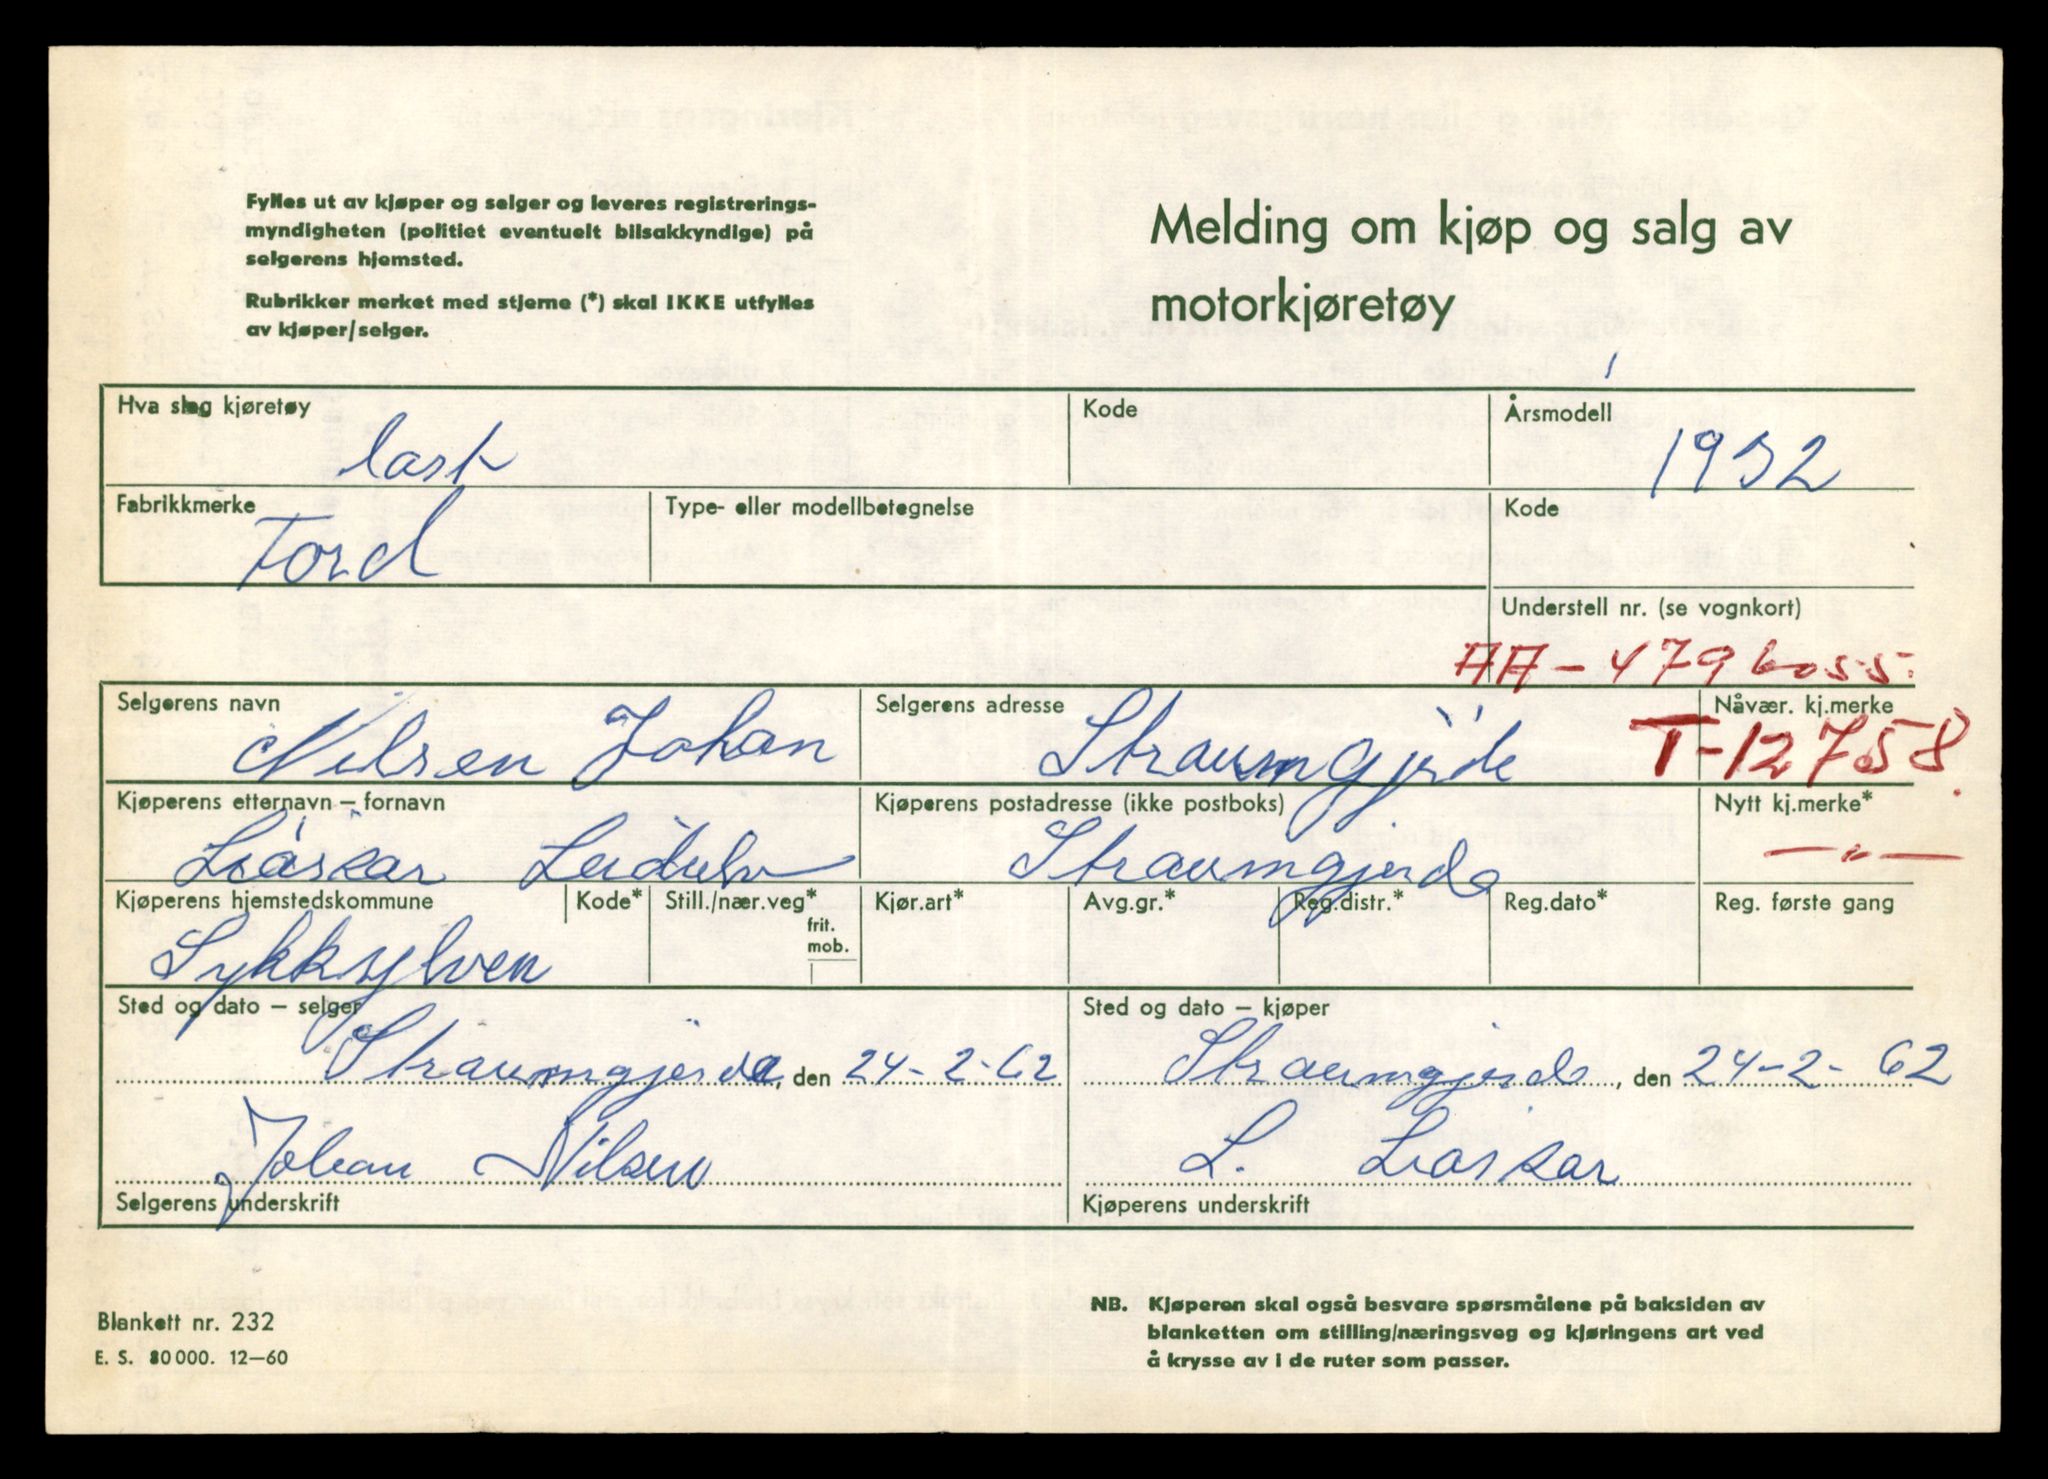 Fylles ut av kjøper og selger og leveres registrerings-
myndigheten (politiet eventuelt bilsakkyndige) på
selgerens hjemsted.
Rubrikker merket med stjerne (*) skal IKKE utfylles
av kjøper/selger.
Melding om kjøp og salg av
motorkjøretøy
Hva slag kjøretøy
last
Kode
Årsmodell
1932
Fabrikkmerke
Ford
Type- eller modellbetegnelse
Kode
Understell nr. (se vognkort)
AA-479
Selgerens navn
Nilsen Johan
Selgerens adresse
Straumgjerde
Nåvær. kj.merke
T-12758
Kjøperens etternavn – fornavn
Kjøperens postadresse (ikke postboks)
Straumgjerde
Nytt kj.merke*
— „ —
Kjøperens hjemstedskommune
Sykkylven
Kode*
Still./nær.veg*
frit.
mob.
Kjør.art*
Avg.gr.*
Reg.distr.*
Reg.dato*
Reg. første gang
Sted og dato – selger
Straumgjerde, den 24-2-62
Sted og dato – kjøper
Straumgjerde, den 24-2-62
Johan Nilsen
Selgerens underskrift
L.
Kjøperens underskrift
Blankett nr. 232
E. S. 80000. 12–60
NB. Kjøperen skal også besvare spørsmålene på baksiden av
blanketten om stilling/næringsveg og kjøringens art ved
å krysse av i de ruter som passer.